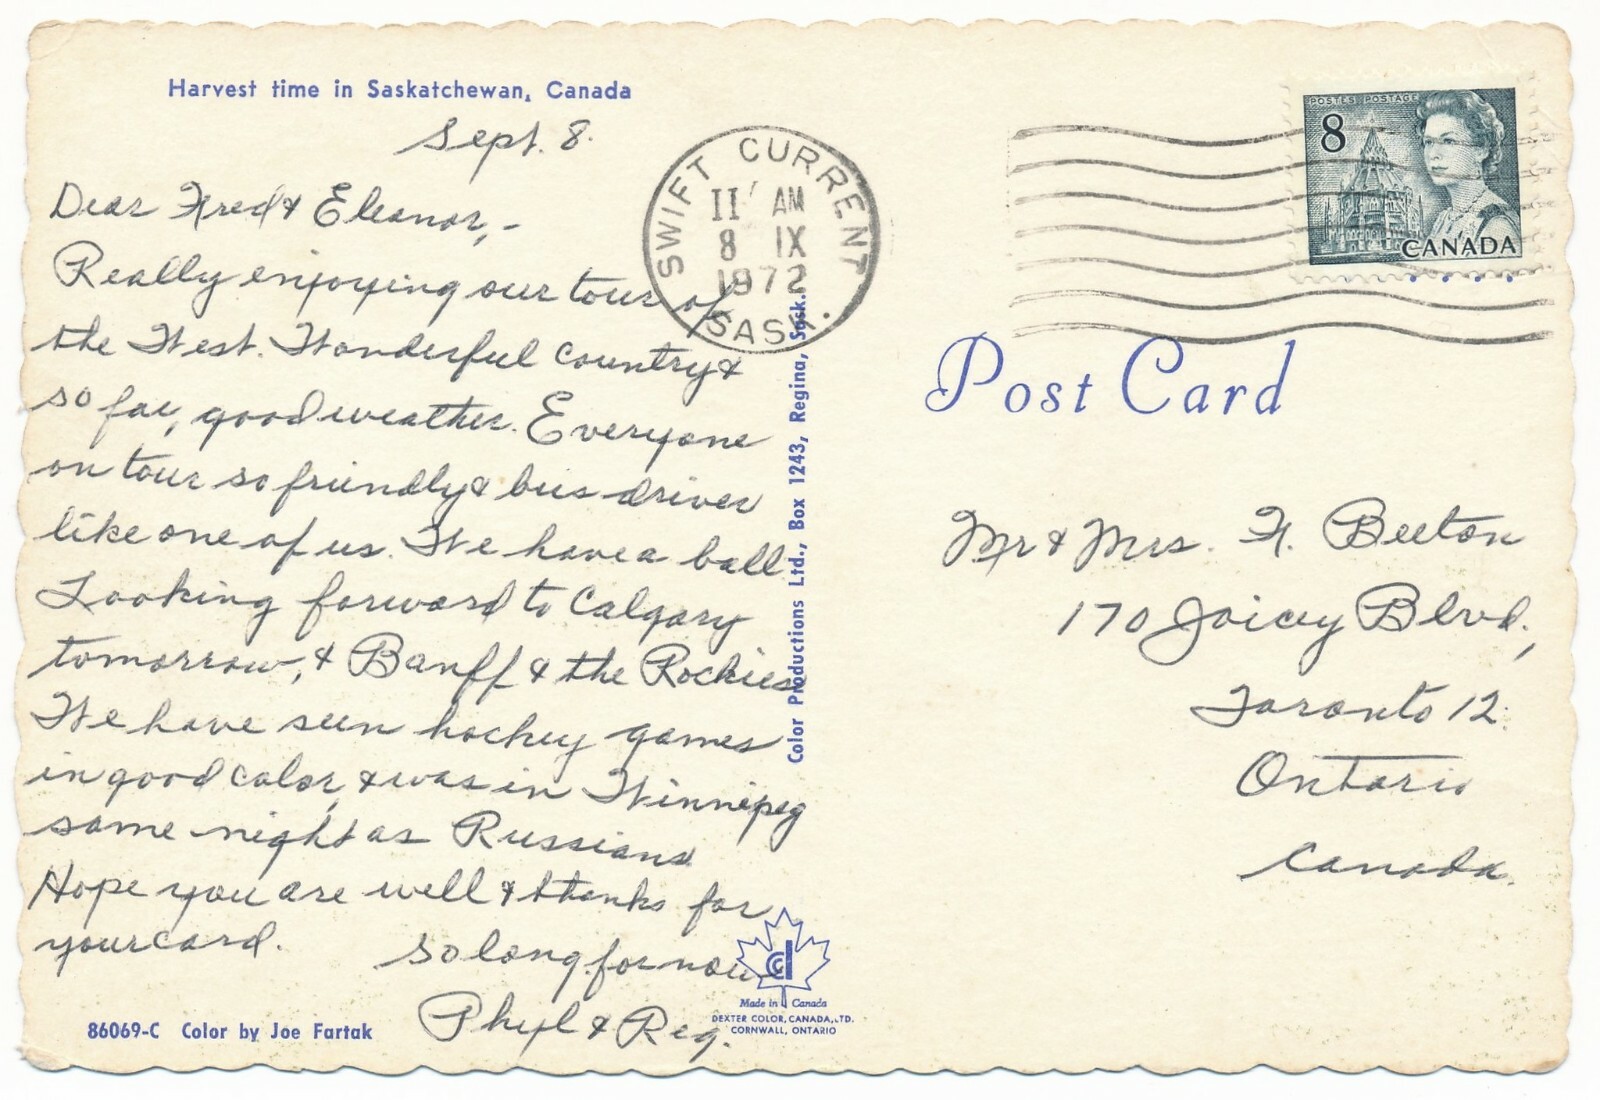 Harvest time in Saskatchewan, Canada
Sept. 8.
Dear Fred & Eleanor, -
Really enjoying our tour of
the West. Wonderful country &
so far, good weather. Everyone
on tour so friendly & bus driver
like one of us. We have a ball.
Looking forward to Calgary
tomorrow, & Banff & the Rockies.
We have seen hockey games
in good color, & was in Winnipeg
same night as Russians
Hope you are well & thanks for
your card.
So long for now
Phyl & Reg.
86069-C Color by Joe Fartak
SWIFT CURRENT
II AM
8 IX
1972
SASK.
Color Productions Ltd., Box 1243, Regina, Sask.
cd
Made in Canada
DEXTER COLOR, CANADA, LTD.
CORNWALL, ONTARIO
POSTES POSTAGE
8
CANADA
Post Card
Mr & Mrs. F. Beeton
170 Joicey Blvd.,
Toronto 12.
Ontario
Canada.